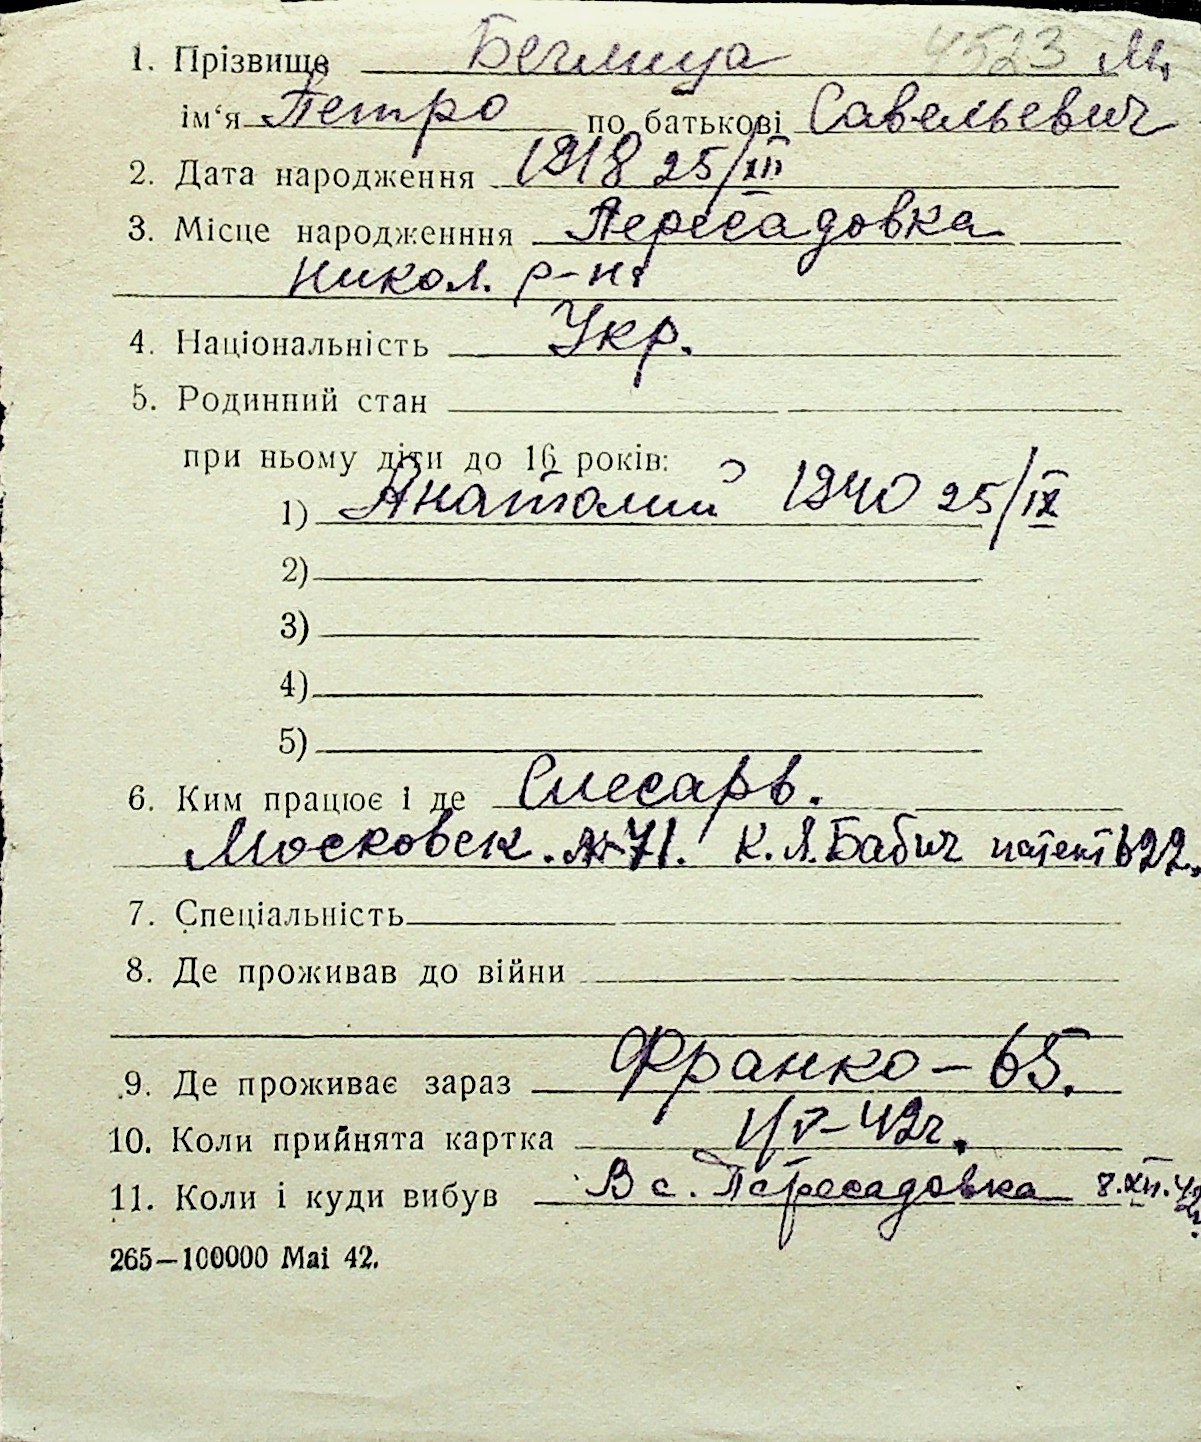 1. Прізвище Беглица 4523 М.
ім'я Петро по батькові Савельевич
2. Дата народження 1918 25/XII
3. Місце народженння Пересадовка
Никол. р-на
4. Національність Укр.
5. Родинний стан
при ньому діти до 16 років:
1) Анатолий 1940 25/IX
2)
3)
4)
5)
6. Ким працює і де Слесарь.
Московск. № 71. К. Я. Бабич патент 622.
7. Спеціальність
8. Де проживав до війни
9. Де проживає зараз Франко – 65.
10. Коли прийнята картка 1/V – 42 г.
11. Коли і куди вибув В с. Пересадовка 8.XII.42 г.
265—100000 Mai 42.